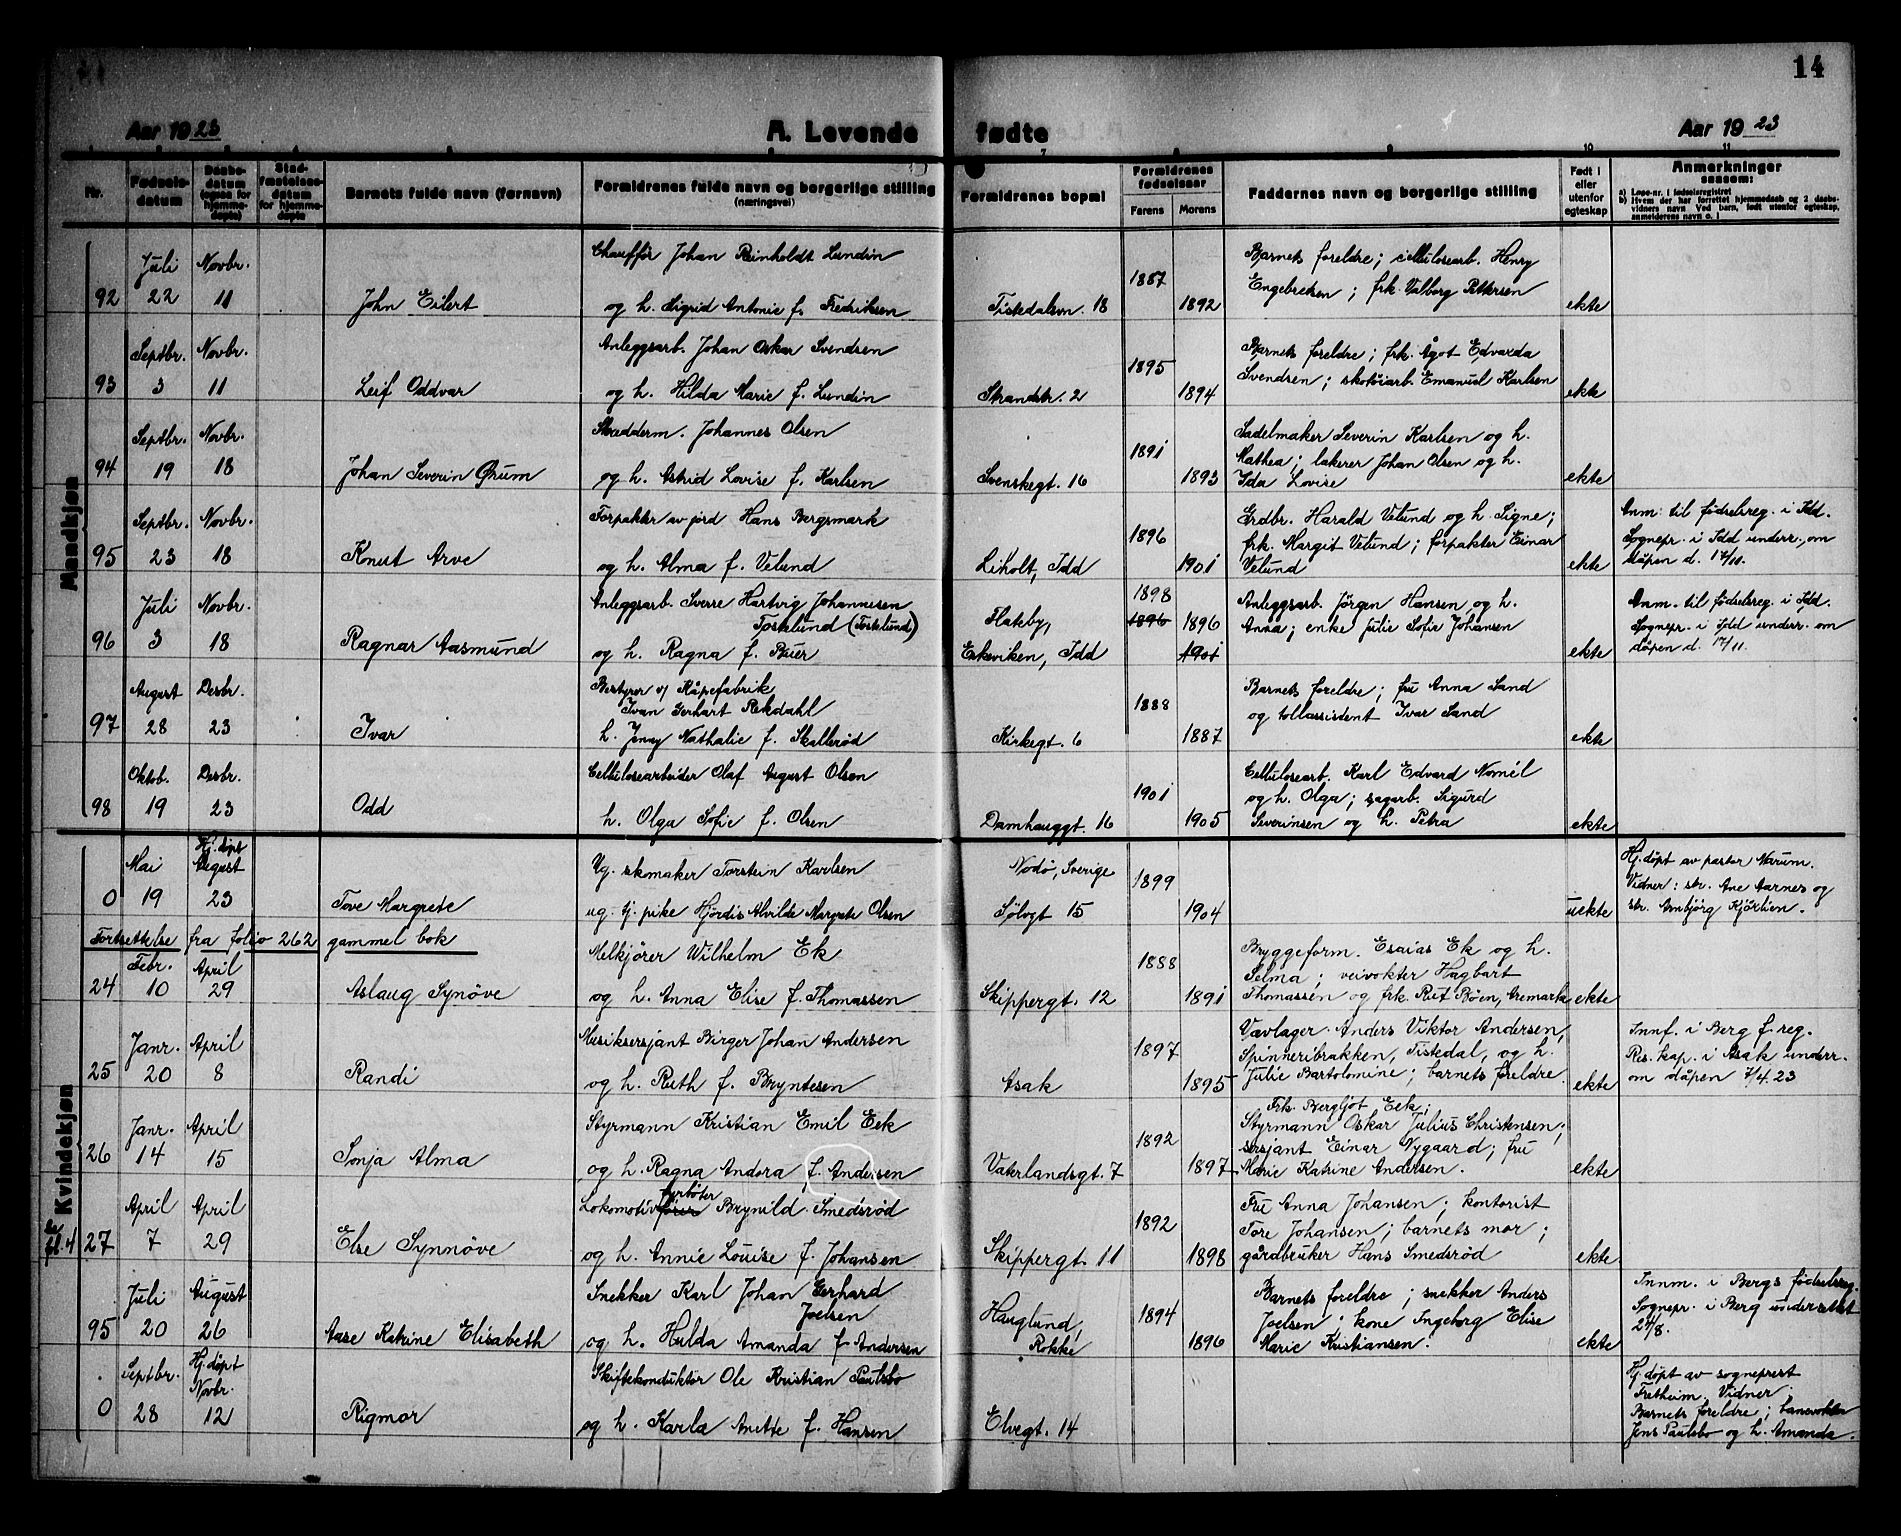 14
Aar 1923
A. Levende
fødte
Aar 1923
7
9
10
11
Nr.
Fødsels-
datum
Daabs-
datum
(ogsaa for
hjemme-
døpte)
Stad-
fæstelses-
datum
for hjemme-
døpte
Barnets fulde navn (fornavn)
Forældrenes fulde navn og borgerlige stilling
(næringsvei)
Forældrenes bopæl
Forældrenes
fødselsaar
Farens
Morens
Faddernes navn og borgerlige stilling
Født i
eller
utenfor
egteskap
Anmerkninger
saasom:
a) Løpe-nr. i fødselsregistret
b) Hvem der har forrettet hjemmedaab og 2 daabs-
vidners navn Ved barn, født utenfor egteskap,
anmelderens navn o. l
Mandkjøn
92
Juli
22
Novbr.
11
John Eilert
Chauffør Johan Reinholdt Lundin
og h. Sigrid Antonie f. Fredriksen
Tistedalsvn. 18
1887
1892
Barnets foreldre; cellulosearb. Henry
Engebretsen; frk. Valborg Pettersen
ekte
93
Septbr.
3
Novbr.
11
Leif Oddvar
Anleggsarb. Johan Oskar Svendsen
og h. Hilda Marie f. Lundin
Strandstr. 2
1895
1894
Barnets foreldre; frk. Ågot Edvarda
Svendsen; skotøiarb. Emanuel Karlsen
ekte
94
Septbr.
19
Novbr.
18
Johan Severin Ørum
Skredderm. Johannes Olsen
og h. Astrid Lovise f. Karlsen
Svenskegt. 16
1891
1893
Sadelmaker Severin Karlsen og h.
Mathea; lakerer Johan Olsen og h.
Ida Lovise
ekte
95
Septbr.
23
Novbr.
18
Knut Arve
Forpakter av jord Hans Bergsmark
og h. Alma f. Velund
Liholt, Idd
1896
1901
Grdbr. Harald Velund og h. Signe;
frk. Margit Velund; forpakter Einar
Velund
ekte
Anm. til fødselsreg. i Idd.
Sognepr. i Idd underr. om
dåpen d. 17/11.
96
Juli
3
Novbr.
18
Ragnar Aasmund
Anleggsarb. Sverre Hartvig Johannesen
Tosklund (Tosklund)
og h. Ragna f. Buer
Flakeby,
Enkeviken, Idd
1898
1896
1896
1901
Anleggsarb. Jörgen Hansen og h.
Anna; enke Julie Sofie Johansen
ekte
Anm. til fødselsreg. i Idd.
Sognepr. i Idd underr. om
dåpen d. 17/11.
97
August
28
Desbr.
23
Ivar
Bestyrer v/ Kåpefabrik
Ivan Gerhart Rekdahl
h. Jenny Nathalie f. Skallerød
Kirkegt. 6
1888
1887
Barnets foreldre; fru Anna Sand
og tollassistent Ivar Sand
ekte
98
Oktob.
19
Desbr.
23
Odd
Cellulosearbeider Olaf August Olsen
h. Olga Sofie f. Olsen
Damhauggt. 16
1901
1905
Cellulosearb. Karl Edvard Nomél
og h. Olga; sagarb. Sigurd
Severinsen og h. Petra
ekte
Kvindekjøn
0
Mai
19
Hj. døpt
August
23
Tove Margrete
Ug. skomaker Torstein Karlsen
ug. tj. pike Hjördis Alvilde Margrete Olsen
Nodø, Sverige
Sølvgt 15
1899
1904
uekte
Hj. døpt av pastor Narum.
Vidner: str. Ane Aarnes og
str. Ambjörg Kjöstien.
Fortsettelse fra folio 262 gammel bok
24
Febr.
10
April
29
Aslaug Synöve
Melkjører Wilhelm Ek
og h. Anna Elise f. Thomassen
Skippergt. 12
1888
1891
Bryggeform. Esaias Ek og h.
Selma; veivokter Hagbart
Thomassen og frk. Rut Bøen, Aremark
ekte
25
Janr.
20
April
8
Randi
Musiksersjant Birger Johan Andersen
og h. Ruth f. Bryntesen
Asak
1897
1895
Vævlager Anders Viktor Andersen,
Spinneribrakken, Tistedal, og h.
Julie Bartolomine; barnets foreldre.
ekte
Innf. i Berg f. reg.
Res. kap. i Asak underr.
om dåpen 7/4.23
26
Janr.
14
April
15
Sonja Alma
Styrmann Kristian Emil Eek
og h. Ragna Andora f. Andersen
Vaterlandsgt. 7
1892
1897
Frk. Bergljot Eek;
Styrmann Oskar Julius Christensen;
sersjant Einar Nygaard; fru
Marie Katrine Andersen.
ekte
27
April
7
April
29
Else Synnöve
fyrbøter
Lokomotivfører Brynild Smedsrød
og h. Annie Louise f. Johansen
Skippergt. 11
1892
1898
Fru Anna Johansen; kontorist
Tore Johansen; barnets mor;
gårdbruker Hans Smedsrød
ekte
95
Juli
20
August
26
Aase Katrine Elisabeth
Snekker Karl Johan Gerhard
Joelsen
og h. Hulda Amanda f Andersen
Hauglund,
Rokke
1894
1896
Barnets foreldre; snekker Anders
Joelsen; kone Ingeborg Elise
Marie Kristiansen.
ekte
Innm. i Bergs fødselsreg.
Sognepr. i Berg underrettet
24/8.
0
Septbr.
28
Hj. døpt
Novbr.
12
Rigmor
Skiftekonduktör Ole Kristian Paulsbo
og h. Karla Anette f. Hansen
Elvegt. 14
Hj. døpt av sogneprest
Fretheim. Vidner
Barnets foreldre; banevokter
Jens Paulsbo og h. Amanda.